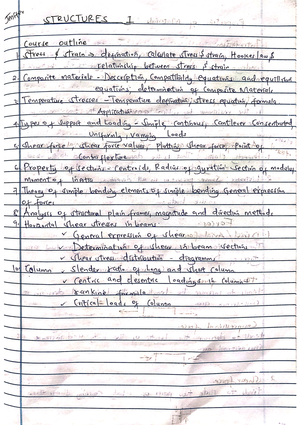 STRUCTURES I
Course outline
1. Stress & strain - derivation, calculate stress & strain, Hookes law &
relationship between stress & strain
2. Composite materials - Description, Compatibility, equations and equilibrium
equations, determination of Composite Materials
3. Temperature stresses - Temperature derivation, stress equation, formula
Application
4. Types of Support and Loading - Simple, continuous, Cantilever Concentrated
Uniformly, varying loads
5. Shear force, shear force values, Plotting shear force, Point of
Contraflexure
6. Property of sections - Centroids, Radius of gyration Section of modulus,
moment of inertia
7. Theory of simple bending, element of simple bending General expression
of forces
8. Analysis of structural plain frames, magnitude and direction methods
9. Horizontal shear stresses in beams
✓ General expression of shear
✓ Determination of shear in beam sections
✓ Shear stress distribution - diagrams
10. Column - Slender ratio of long and short column
✓ Centric and eccentric loadings in Columns
rankine formula
✓ Critical loads of Column